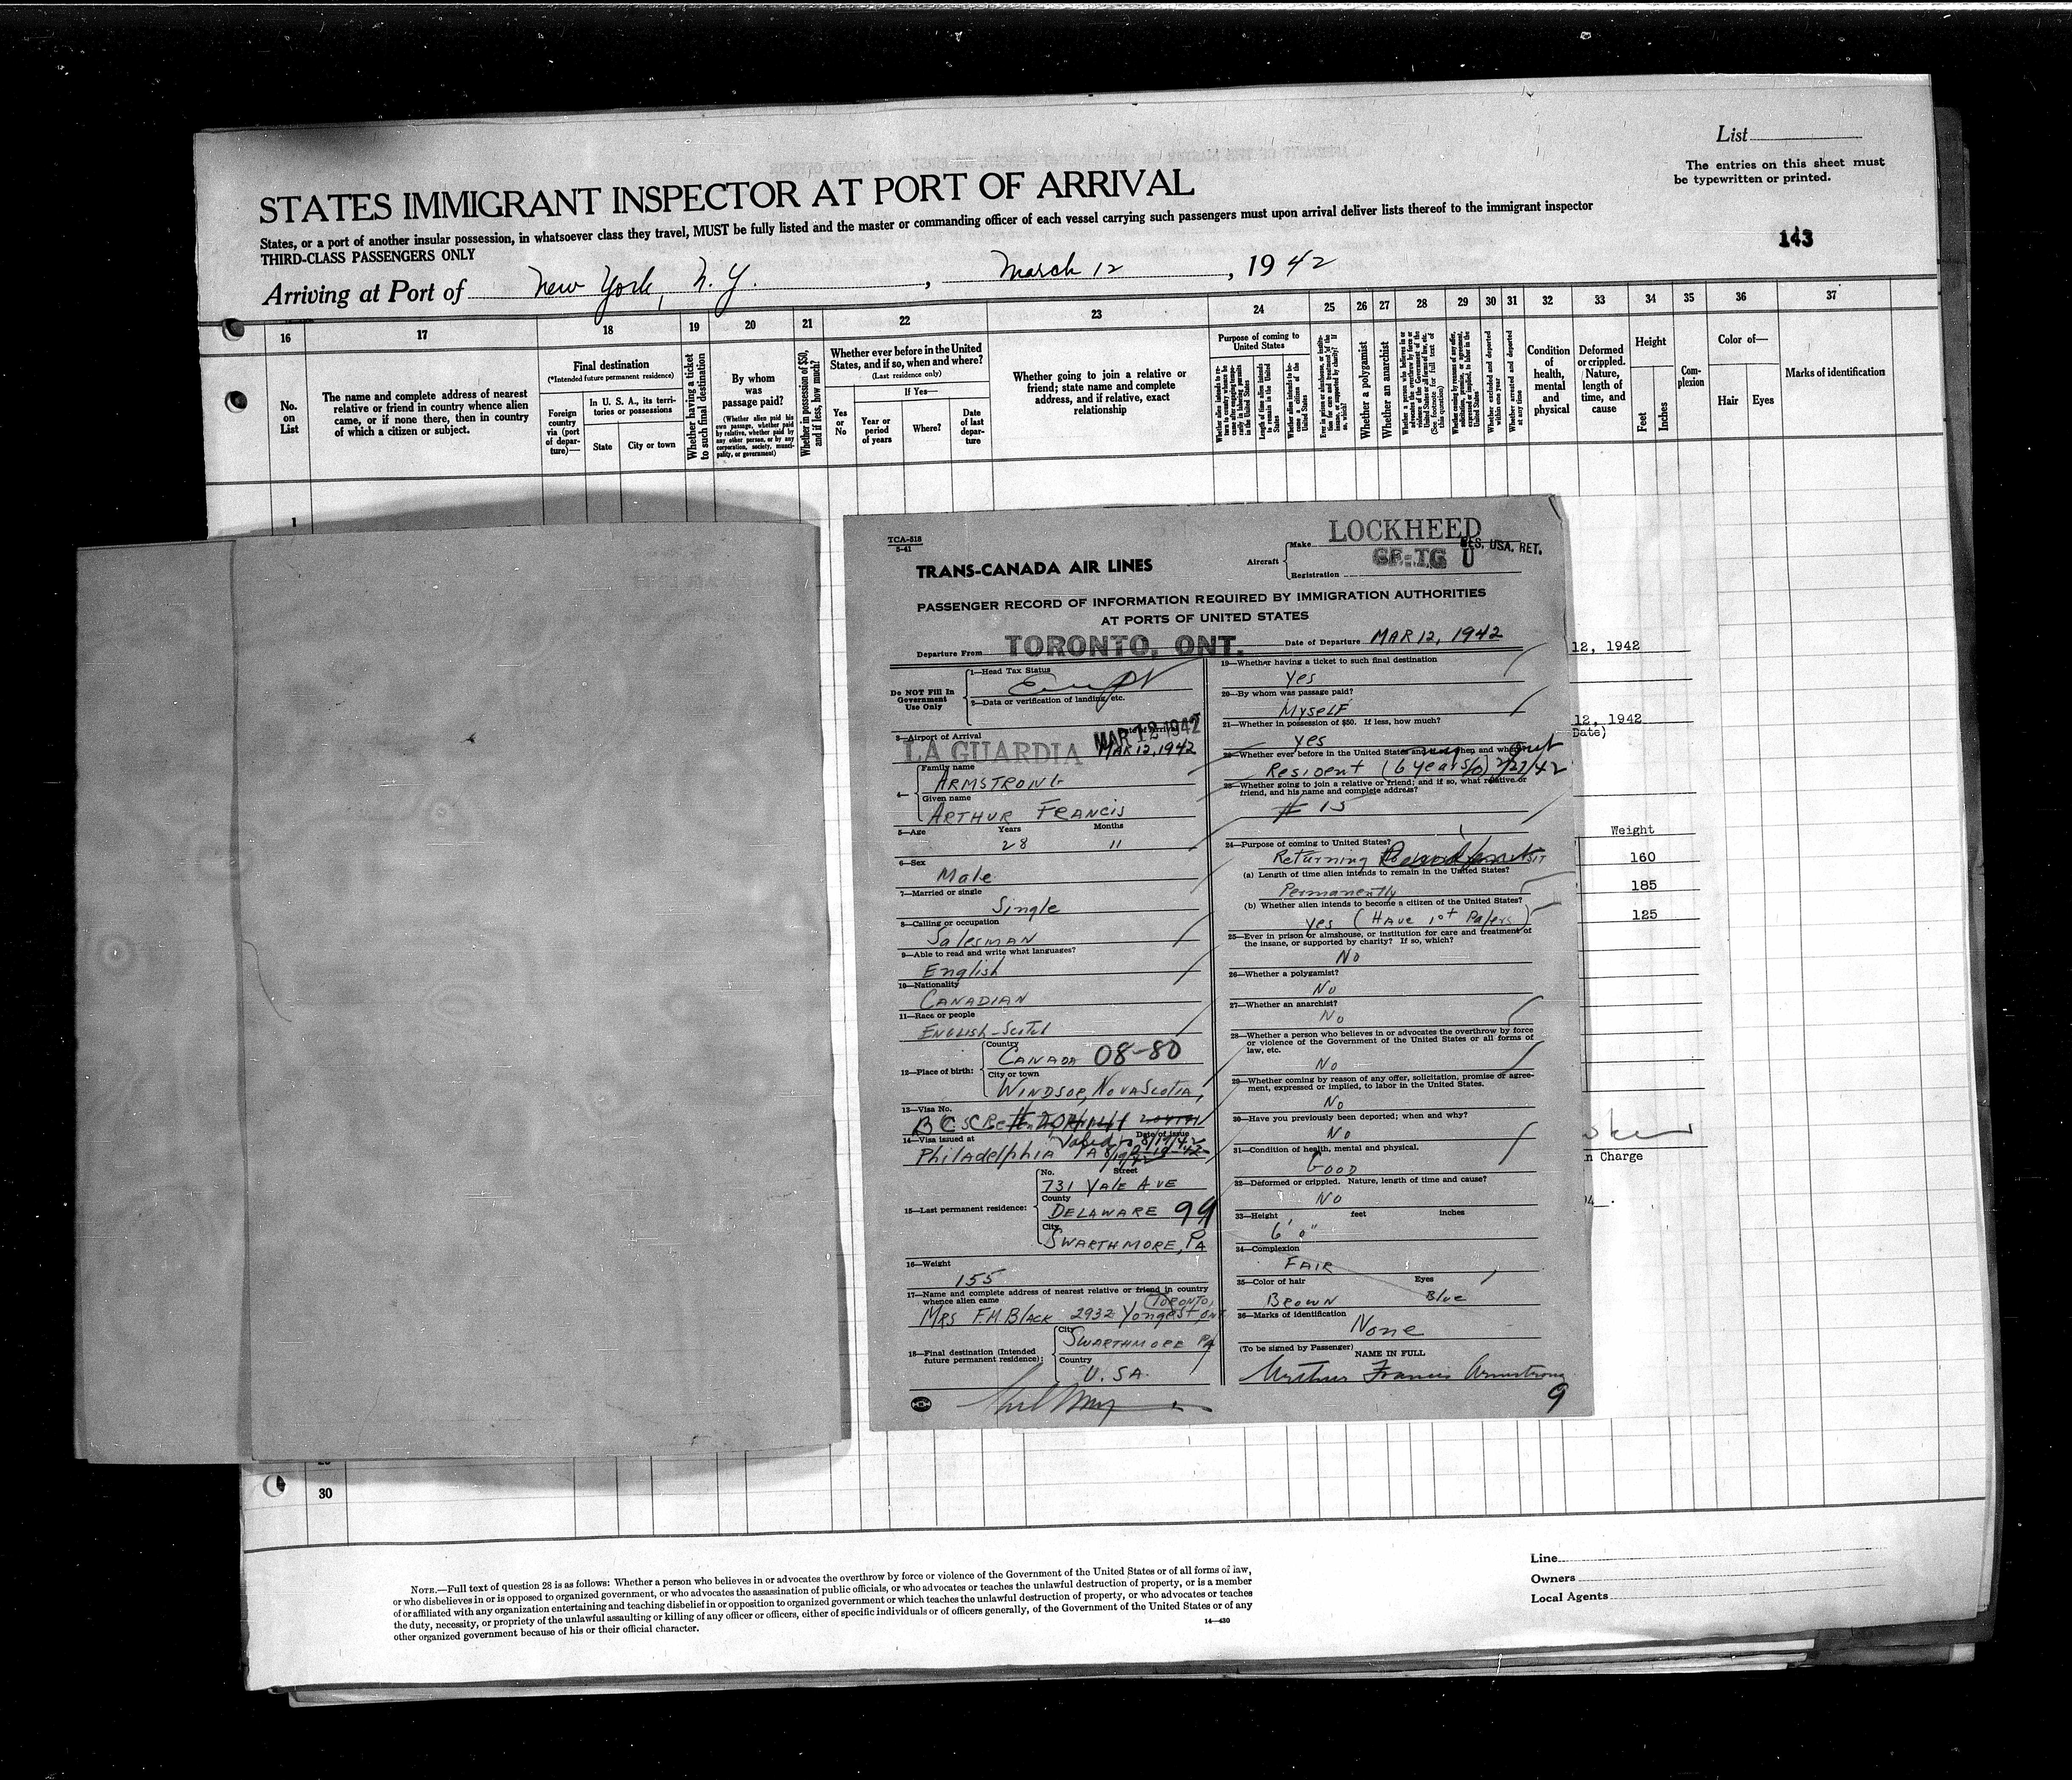 List
The entries on this sheet must
be typewritten or printed.
STATES IMMIGRANT INSPECTOR AT PORT OF ARRIVAL
States, or a port of another insular possession, in whatsoever class they travel, MUST be fully listed and the master or commanding officer of each vessel carrying such passengers must upon arrival deliver lists thereof to the immigrant inspector
THIRD-CLASS PASSENGERS ONLY
143
Arriving at Port of New York, N.Y. , March 12 , 1942
16 17 18 19 20 21 22 23 24 25 26 27 28 29 30 31 32 33 34 35 36 37
No.
on
List
The name and complete address of nearest
relative or friend in country whence alien
came, or if none there, then in country
of which a citizen or subject.
Final destination
(*Intended future permanent residence)
Foreign
country
via (port
of depar-
ture)—
In U. S. A., its terri-
tories or possessions
State
City or town
Whether having a ticket
to such final destination
By whom
was
passage paid?
(Whether alien paid his
own passage, whether paid
by relative, whether paid by
any other person, or by any
corporation, society, munici-
pality, or government)
Whether in possession of $50,
and if less, how much?
Whether ever before in the United
States, and if so, when and where?
(Last residence only)
Yes
or
No
If Yes—
Year or
period
of years
Where?
Date
of last
depar-
ture
Whether going to join a relative or
friend; state name and complete
address, and if relative, exact
relationship
Purpose of coming to
United States
Whether a polygamist
Whether an anarchist
Whether excluded and deported
within one year
Whether arrested and deported
at any time
Condition
of
health,
mental
and
physical
Deformed
or crippled.
Nature,
length of
time, and
cause
Height
Feet
Inches
Com-
plexion
Color of—
Hair
Eyes
Marks of identification
1
TCA-518
5-41
TRANS-CANADA AIR LINES
Aircraft
Make LOCKHEED
Registration CF-TC U
RES, USA, RET.
PASSENGER RECORD OF INFORMATION REQUIRED BY IMMIGRATION AUTHORITIES
AT PORTS OF UNITED STATES
Departure From TORONTO, ONT. Date of Departure MAR 12, 1942
Do NOT Fill In
Government
Use Only
1—Head Tax Status
2—Data or verification of landing, etc.
3—Airport of Arrival
LA GUARDIA MAR 12 1942
MAR 12, 1942
4—
Family name
ARMSTRONG
Given name
ARTHUR FRANCIS
5—Age Years Months
28 11
6—Sex
Male
7—Married or single
Single
8—Calling or occupation
Salesman
9—Able to read and write what languages?
English
10—Nationality
CANADIAN
11—Race or people
ENGLISH-Scotch
12—Place of birth:
Country
CANADA 08-80
City or town
WINDSOR, NOVA SCOTIA,
13—Visa No.
14—Visa issued at Date of issue
Philadelphia PA
15—Last permanent residence:
No. Street
731 YALE AVE
County
DELAWARE 99
City
SWARTHMORE, PA
16—Weight
155
17—Name and complete address of nearest relative or friend in country
whence alien came
TORONTO,
MRS F.H. Black 2932 Yonge St ONT
18—Final destination (Intended
future permanent residence):
City
SWARTHMORE PA
Country
U.SA.
19—Whether having a ticket to such final destination
yes
20—By whom was passage paid?
MYSELF
21—Whether in possession of $50. If less, how much?
yes
22—Whether ever before in the United States and when and where
Resident (6 years)
23—Whether going to join a relative or friend; and if so, what relative or
friend, and his name and complete address?
# 15
24—Purpose of coming to United States?
Returning
(a) Length of time alien intends to remain in the United States?
Permanently
(b) Whether alien intends to become a citizen of the United States?
yes (HAVE 1st Papers)
25—Ever in prison or almshouse, or institution for care and treatment of
the insane, or supported by charity? If so, which?
No
26—Whether a polygamist?
No
27—Whether an anarchist?
No
28—Whether a person who believes in or advocates the overthrow by force
or violence of the Government of the United States or all forms of
law, etc.
No
29—Whether coming by reason of any offer, solicitation, promise or agree-
ment, expressed or implied, to labor in the United States.
No
30—Have you previously been deported; when and why?
No
31—Condition of health, mental and physical.
GOOD
32—Deformed or crippled. Nature, length of time and cause?
No
33—Height feet inches
6' 0"
34—Complexion
FAIR
35—Color of hair Eyes
BROWN Blue
36—Marks of identification
None
(To be signed by Passenger)
NAME IN FULL
Arthur Francis Armstrong
9
12, 1942
12, 1942
Date)
Weight
160
185
125
n Charge
30
NOTE.—Full text of question 28 is as follows: Whether a person who believes in or advocates the overthrow by force or violence of the Government of the United States or of all forms of law,
or who disbelieves in or is opposed to organized government, or who advocates the assassination of public officials, or who advocates or teaches the unlawful destruction of property, or is a member
of or affiliated with any organization entertaining and teaching disbelief in or opposition to organized government or which teaches the unlawful destruction of property, or who advocates or teaches
the duty, necessity, or propriety of the unlawful assaulting or killing of any officer or officers, either of specific individuals or of officers generally, of the Government of the United States or of any
other organized government because of his or their official character.
14—430
Line
Owners
Local Agents